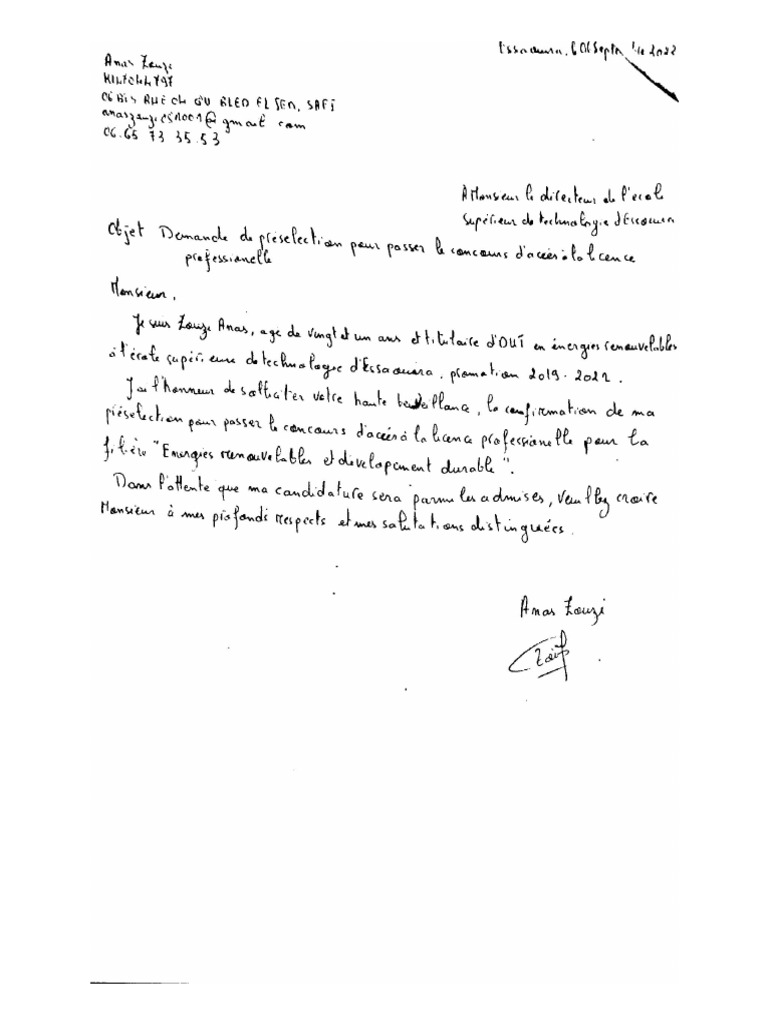 Essaouira, le 06 Septembre 2022
Anas Zouzi
06 BIS RUE CH OU BLED EL JED, SAFI
@gmail com
06.65 73 35.53
A Monsieur le directeur de l'école
Supérieur de technologie d'Essaouira
Objet Demande de préselection pour passer le concours d'accès à la licence
professionelle
Monsieur,
Je suis Zouzi Anas, age de vingt et un ans et titulaire d'DUT en énergies renouvelables
à l'école supérieure de technologie d'Essaouira, promotion 2019-2022.
J'ai l'honneur de solliciter votre haute bienveillance, la confirmation de ma
préselection pour passer le concours d'accès à la licence professionelle pour la
filière "Energies renouvelables et developement durable".
Dans l'attente que ma candidature sera parmi les admises, veuillez croire
Monsieur à mes profonds respects et mes salutations distinguées.
Anas Zouzi